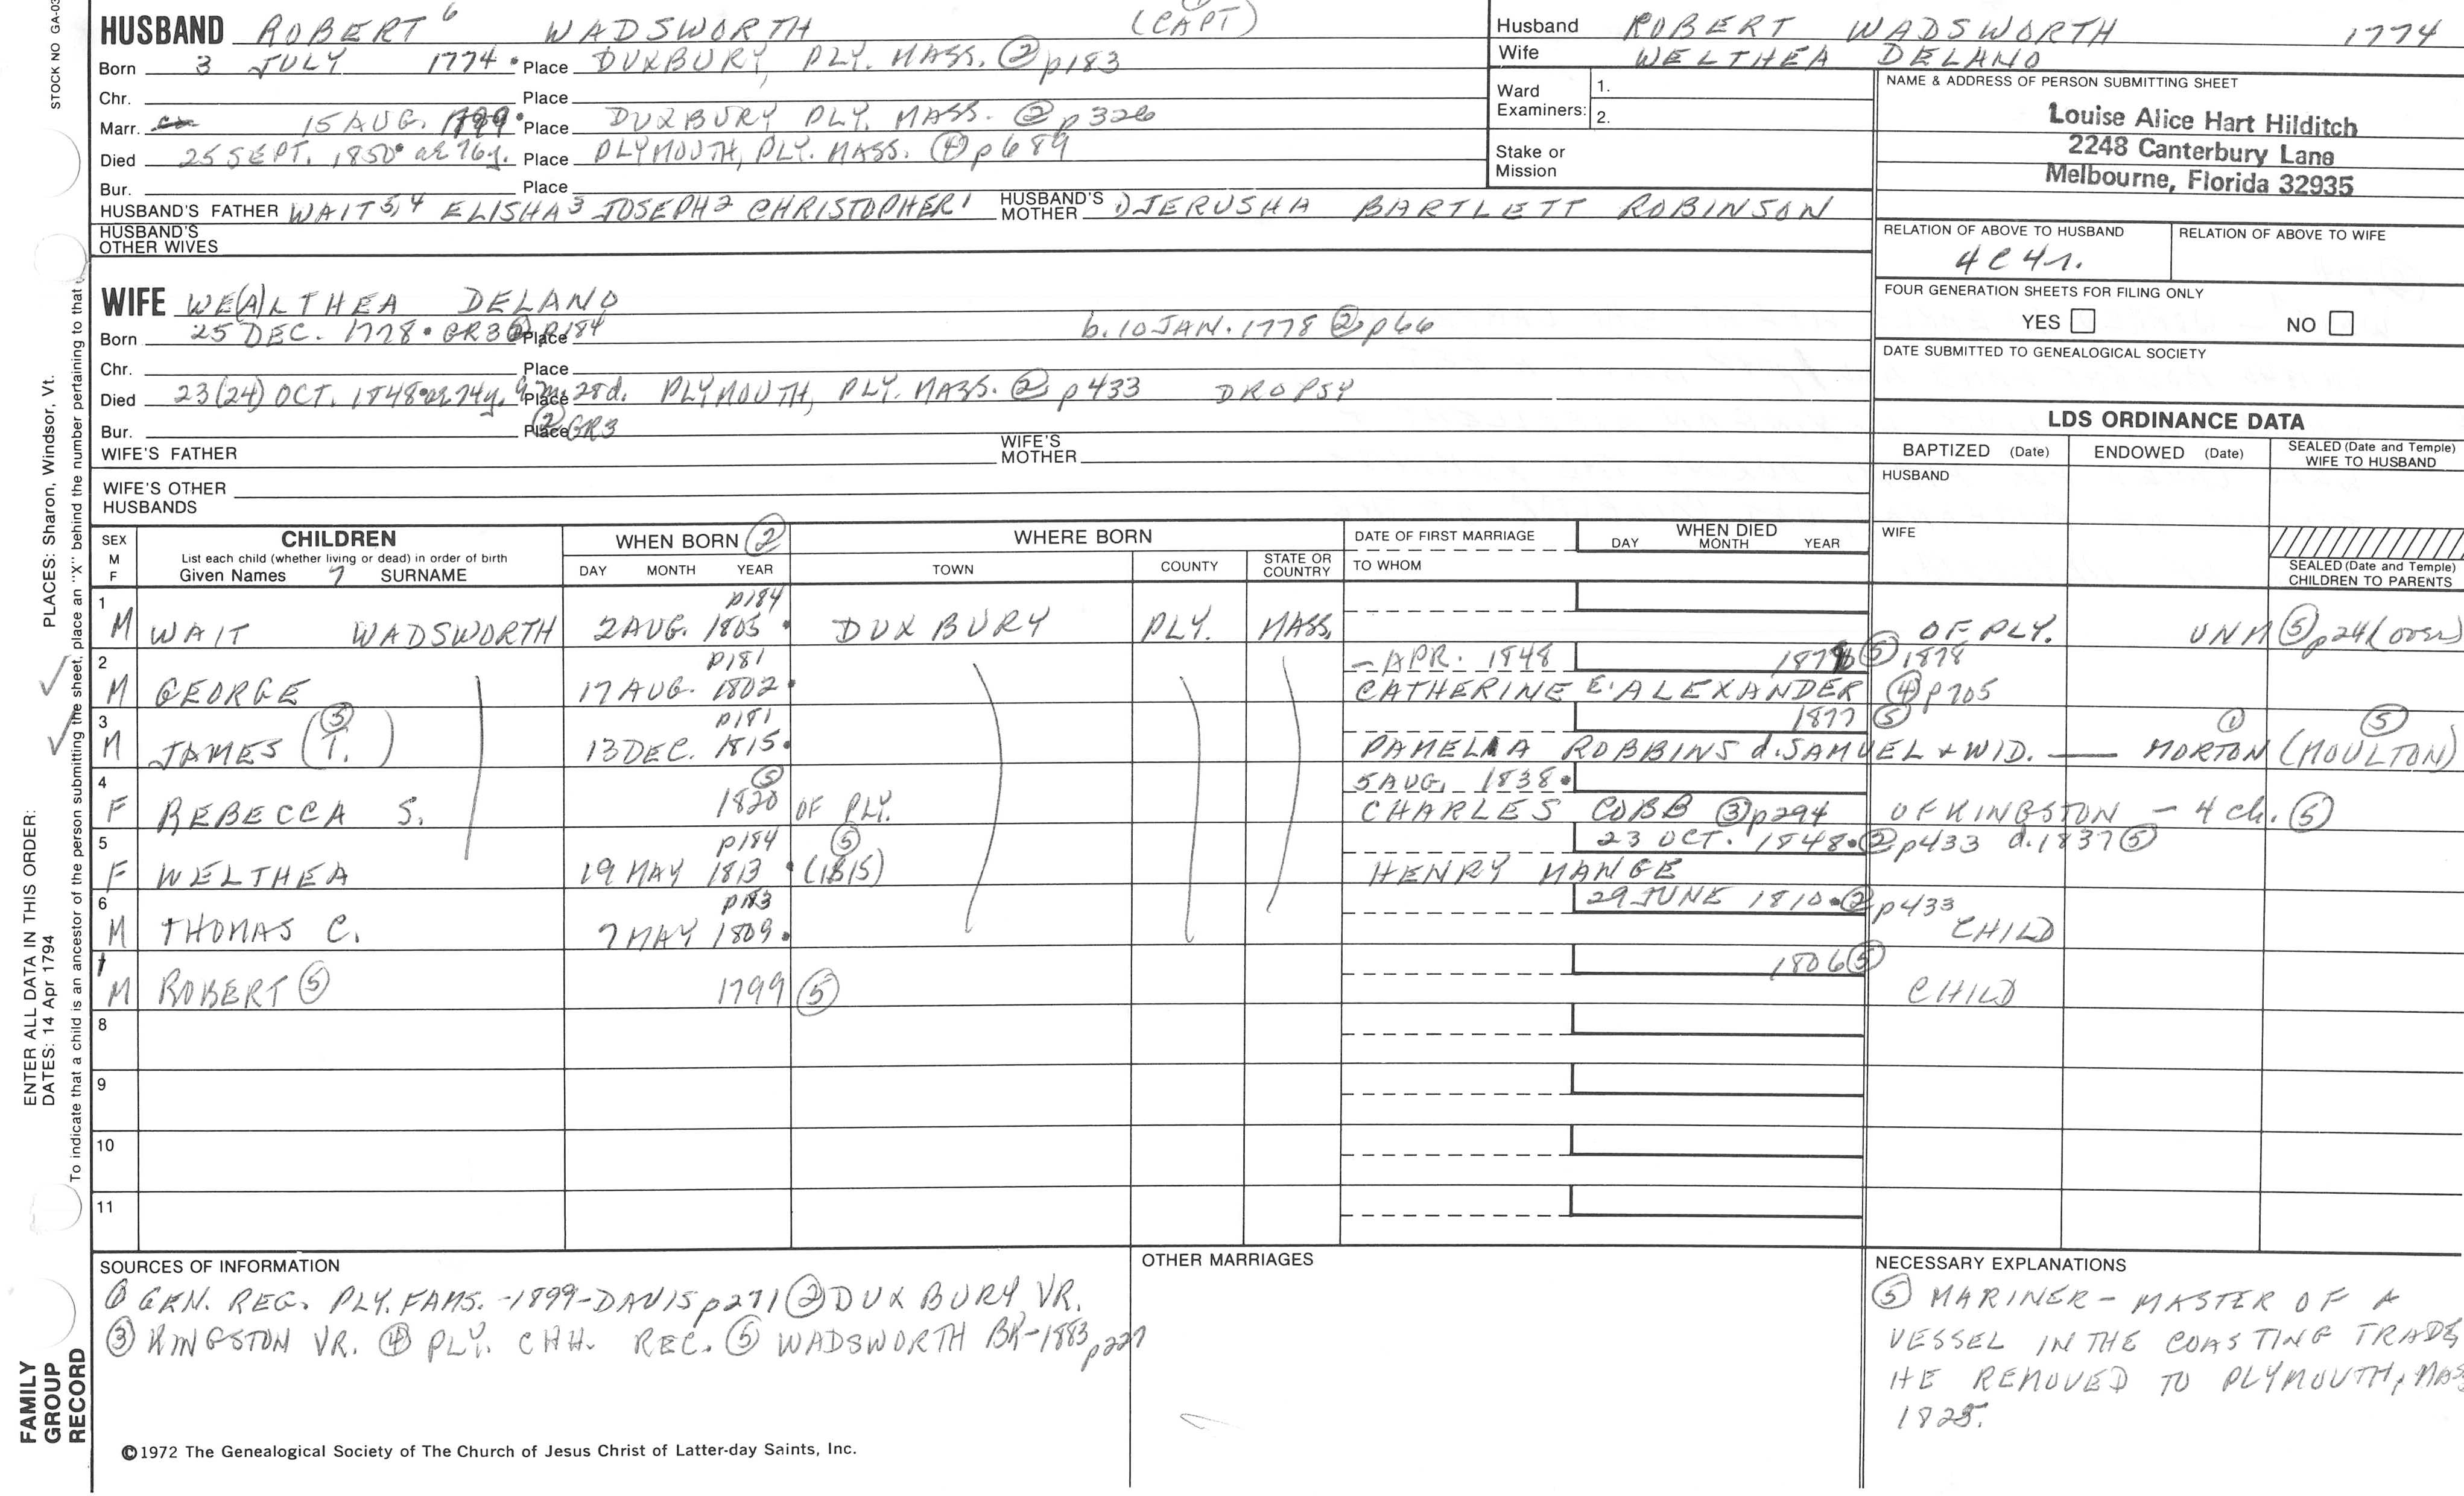 STOCK NO GA-03
HUSBAND ROBERT 6 WADSWORTH (CAPT)
Born 3 JULY 1774 Place DUXBURY, PLY. MASS. ② p183
Chr. Place
Marr. 15 AUG. 1799 Place DUXBURY PLY. MASS. ② p326
Died 25 SEPT. 1850 ae 76y. Place PLYMOUTH, PLY. MASS. ④ p689
Bur. Place
HUSBAND'S FATHER WAIT 5,4 ELISHA 3 JOSEPH 2 CHRISTOPHER 1 HUSBAND'S MOTHER ① JERUSHA BARTLETT ROBINSON
HUSBAND'S OTHER WIVES
Husband ROBERT WADSWORTH 1774
Wife WELTHEA DELANO
Ward Examiners: 1.
2.
Stake or Mission
NAME & ADDRESS OF PERSON SUBMITTING SHEET
Louise Alice Hart Hilditch
2248 Canterbury Lane
Melbourne, Florida 32935
RELATION OF ABOVE TO HUSBAND RELATION OF ABOVE TO WIFE
4C4r.
FOUR GENERATION SHEETS FOR FILING ONLY
YES NO
DATE SUBMITTED TO GENEALOGICAL SOCIETY
WIFE WE(A)LTHEA DELANO
Born 25 DEC. 1778 GR3 ② Place p184 b. 10 JAN. 1778 ② p66
Chr. Place
Died 23(24) OCT. 1848 ae 74y. 9m. 28d. Place PLYMOUTH, PLY. MASS. ② p433 DROPSY
Bur. Place ② GR3
WIFE'S FATHER WIFE'S MOTHER
WIFE'S OTHER HUSBANDS
LDS ORDINANCE DATA
BAPTIZED (Date) ENDOWED (Date) SEALED (Date and Temple) WIFE TO HUSBAND
HUSBAND
WIFE
SEALED (Date and Temple) CHILDREN TO PARENTS
SEX M F CHILDREN List each child (whether living or dead) in order of birth Given Names 7 SURNAME
WHEN BORN ② DAY MONTH YEAR
WHERE BORN TOWN COUNTY STATE OR COUNTRY
DATE OF FIRST MARRIAGE TO WHOM
WHEN DIED DAY MONTH YEAR
1 p184
M WAIT WADSWORTH 2 AUG. 1805 DUXBURY PLY. MASS. OF PLY. UNM ⑤ p24 (over)
2 p181 - APR. 1848 1878 ⑤ 1878
M GEORGE 17 AUG. 1802 CATHERINE E. ALEXANDER ④ p705
3 ⑤ p181 1877 ⑤ ① ⑤
M JAMES (T.) 13 DEC. 1815 PAMELIA ROBBINS d. SAMUEL + WID. — MORTON (MOULTON)
4 ⑤ 5 AUG. 1838
F REBECCA S. 1820 OF PLY. CHARLES COBB ③ p294 OF KINGSTON - 4 ch. ⑤
5 p184 ⑤ 23 OCT. 1848 ② p433 d. 1837 ⑤
F WELTHEA 19 MAY 1813 (1815) HENRY MANGE
6 p183 29 JUNE 1810 ② p433
M THOMAS C. 7 MAY 1809 CHILD
1806 ⑤
M ROBERT ⑤ 1799 ⑤ CHILD
8
9
10
11
SOURCES OF INFORMATION
① GEN. REG. PLY. FAMS. -1899- DAVIS p271 ② DUXBURY VR.
③ KINGSTON VR. ④ PLY. CHH. REC. ⑤ WADSWORTH BK-1883 p227
OTHER MARRIAGES
NECESSARY EXPLANATIONS
⑤ MARINER - MASTER OF A
VESSEL IN THE COASTING TRADE
HE REMOVED TO PLYMOUTH, MAS
1825.
©1972 The Genealogical Society of The Church of Jesus Christ of Latter-day Saints, Inc.
FAMILY
GROUP
RECORD
ENTER ALL DATA IN THIS ORDER:
DATES: 14 Apr 1794
PLACES: Sharon, Windsor, Vt.
To indicate that a child is an ancestor of the person submitting the sheet, place an "X" behind the number pertaining to that